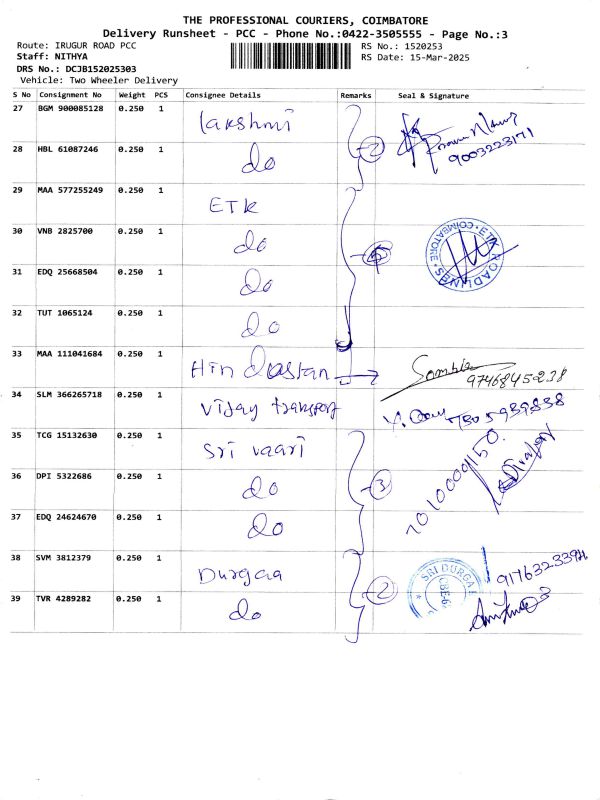 THE PROFESSIONAL COURIERS, COIMBATORE
Delivery Runsheet - PCC - Phone No.:0422-3505555 - Page No.:3
Route: IRUGUR ROAD PCC RS No.: 1520253
Staff: NITHYA RS Date: 15-Mar-2025
DRS No.: DCJB152025303
Vehicle: Two Wheeler Delivery
S No Consignment No Weight PCS Consignee Details Remarks Seal & Signature
27 BGM 900085128 0.250 1 lakshmi
9003223171
28 HBL 61087246 0.250 1 do 2
29 MAA 577255249 0.250 1 ETK
30 VNB 2825700 0.250 1 do
ETK ROADLINES COIMBATORE
31 EDQ 25668504 0.250 1 do
32 TUT 1065124 0.250 1 do
33 MAA 111041684 0.250 1 Hindustan
9746845238
34 SLM 366265718 0.250 1 Vijay transport
35 TCG 15132630 0.250 1 Sri vaari
36 DPI 5322686 0.250 1 do 3
37 EDQ 24624670 0.250 1 do
38 SVM 3812379 0.250 1 Durgaa
SRI DURGA
39 TVR 4289282 0.250 1 do 2